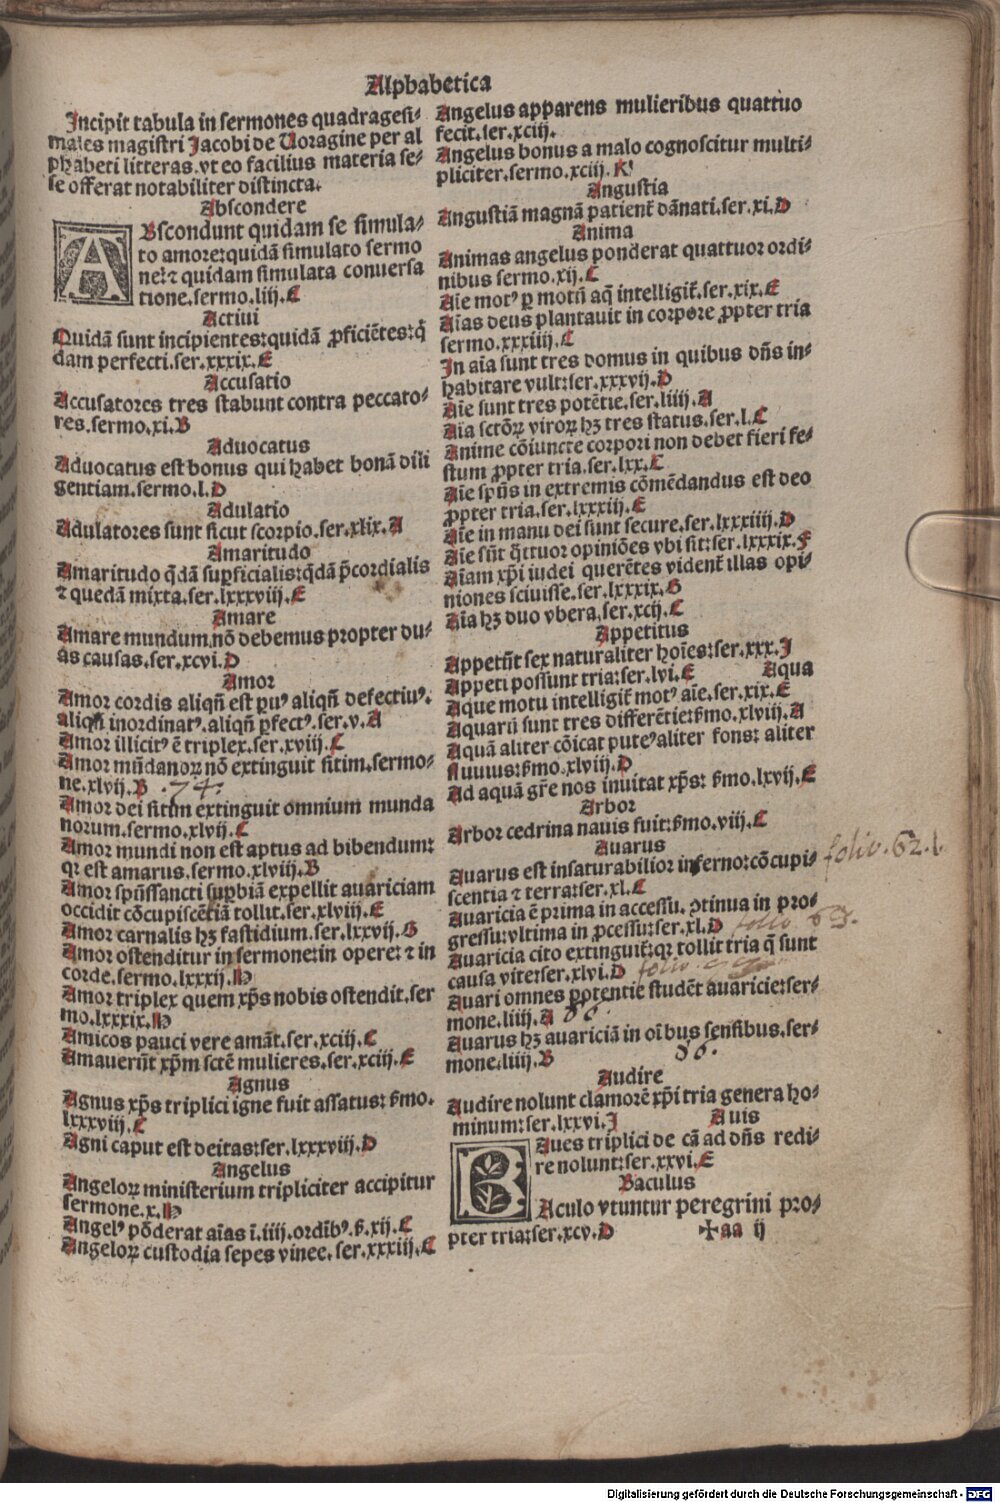 Alphabetica
Incipit tabula in sermones quadragesi-
males magistri Jacobi de Uoragine per al
phabeti litteras. vt eo facilius materia se-
se offerat notabiliter distincta.
Abscondere
ABscondunt quidam se simula-
to amore: quidā simulato sermo
ne: ⁊ quidam simulata conuersa
tione. sermo. liij. E
Actiui
Quidā sunt incipientes: quidā ꝓficiētes: q̄
dam perfecti. ser. xxxix. E
Accusatio
Accusatores tres stabunt contra peccato-
res. sermo. xi. B
Aduocatus
Aduocatus est bonus qui habet bonā dili
gentiam. sermo. l. D
Adulatio
Adulatores sunt sicut scorpio. ser. xlix. A
Amaritudo
Amaritudo q̄dā suꝑficialis: q̄dā p̄cordialis
⁊ quedā mixta. ser. lxxxviij. E
Amare
Amare mundum nō debemus propter du-
as causas. ser. xcvi. D
Amor
Amor cordis aliqn̄ est ꝑuꝰ aliqn̄ defectiuꝰ.
aliqn̄ inordinatꝰ. aliqn̄ ꝑfectꝰ. ser. v. A
Amor illicitꝰ ē triplex. ser. xviij. C
Amor mūdanoꝝ nō extinguit sitim. sermo-
ne. xlvij. B . 74.
Amor dei sitim extinguit omnium munda
norum. sermo. xlvij. C
Amor mundi non est aptus ad bibendum:
qꝛ est amarus. sermo. xlviij. B
Amor spūssancti suꝑbiā expellit auariciam
occidit cōcupiscētiā tollit. ser. xlviij. E
Amor carnalis hꝫ fastidium. ser. lxxvij. G
Amor ostenditur in sermone: in opere: ⁊ in
corde. sermo. lxxxij. H
Amor triplex quem xp̄s nobis ostendit. ser
mo. lxxxix. H
Amicos pauci vere amāt. ser. xciij. C
Amauerūt xp̄m sctē mulieres. ser. xciij. E
Agnus
Agnus xp̄s triplici igne fuit assatus: ẜmo.
lxxxviij. C
Agni caput est deitas: ser. lxxxviij. D
Angelus
Angeloꝝ ministerium tripliciter accipitur
sermone. x. H
Angelꝰ pōderat aīas ī. iiij. ordībꝰ. ẜ. xij. C
Angeloꝝ custodia sepes vinee. ser. xxxiij. C
Angelus apparens mulieribus quattuo
fecit. ser. xciij.
Angelus bonus a malo cognoscitur multi-
pliciter. sermo. xciij. K
Angustia
Angustiā magnā patient̄ dānati. ser. xi. D
Anima
Animas angelus ponderat quattuor ordi-
nibus sermo. xij. C
Aīe motꝰ ꝑ motū aq̄ intelligit̄. ser. xix. E
Aīas deus plantauit in corpore ꝓpter tria
sermo. xxxiiij. C
In aīa sunt tres domus in quibus dn̄s in-
habitare vult: ser. xxxvij. D
Aīe sunt tres potētie. ser. liiij. A
Aīa sctōꝝ viroꝝ hꝫ tres status. ser. l. C
Anime cōiuncte corpori non debet fieri fe-
stum ꝓpter tria. ser. lxx. C
Aīe spūs in extremis cōmēdandus est deo
ꝓpter tria. ser. lxxxiij. E
Aīe in manu dei sunt secure. ser. lxxxiiij. D
Aīe sūt q̄ttuor opiniōes vbi sit: ser. lxxxix. F
Aīam xp̄i iudei querētes vident̄ illas opi-
niones sciuisse. ser. lxxxix. G
Aīa hꝫ duo vbera. ser. xcij. C
Appetitus
Appetūt sex naturaliter hoīes: ser. xxx. J
Appeti possunt tria: ser. lvi. E Aqua
Aque motu intelligit̄ motꝰ aīe. ser. xix. E
Aquarū sunt tres differētie: ẜmo. xlviij. A
Aquā aliter cōicat puteꝰ aliter fons: aliter
fluuius: ẜmo. xlviij. D
Ad aquā gr̄e nos inuitat xp̄s: ẜmo. lxvij. E
Arbor
Arbor cedrina nauis fuit: ẜmo. viij. C
Auarus
Auarus est insaturabilior inferno: cōcupi-
scentia ⁊ terra: ser. xl. C folio. 62.
Auaricia ē prima in accessu. ↄtinua in pro-
gressu: vltima in ꝓcessu: ser. xl. D folio 63.
Auaricia cito extinguit̄: qꝛ tollit tria q̄ sunt
causa vite: ser. xlvi. D folio
Auari omnes ꝓ potentie studēt auaricie: ser-
mone. liiij. A 86.
Auarus hꝫ auariciā in oībus sensibus. ser-
mone. liiij. B 86.
Audire
Audire nolunt clamorē xp̄i tria genera ho-
minum: ser. lxxvi. J Auis
Aues triplici de cā ad dn̄s redi-
re nolunt: ser. xxvi. E
Baculus
BAculo vtuntur peregrini pro-
pter tria: ser. xcv. D ✠aa ij
Digitalisierung gefördert durch die Deutsche Forschungsgemeinschaft - DFG